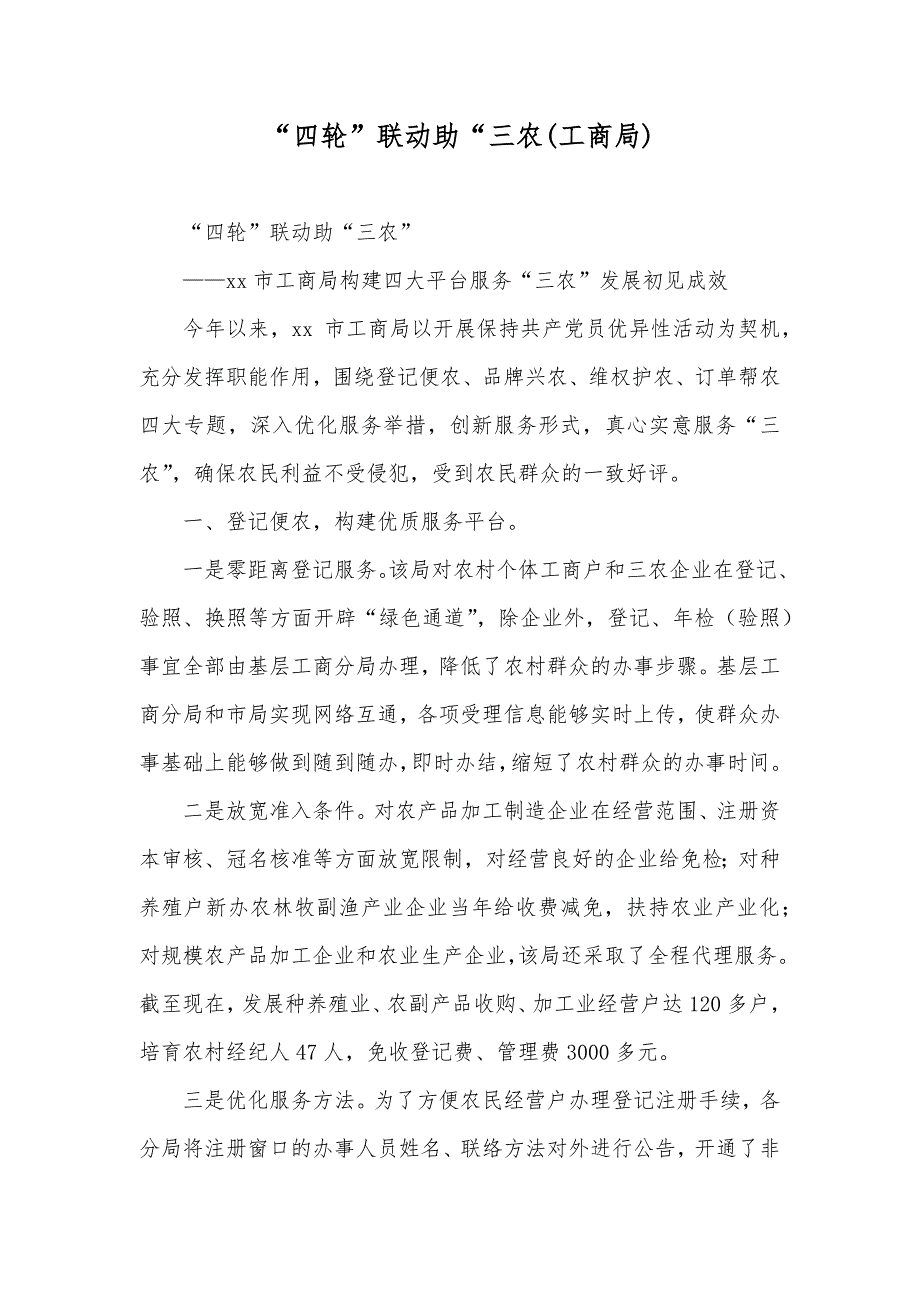 “四轮”联动助“三农(工商局)
“四轮”联动助“三农”
——xx 市工商局构建四大平台服务“三农”发展初见成效
今年以来，xx 市工商局以开展保持共产党员优异性活动为契机，
充分发挥职能作用，围绕登记便农、品牌兴农、维权护农、订单帮农
四大专题，深入优化服务举措，创新服务形式，真心实意服务“三
农”，确保农民利益不受侵犯，受到农民群众的一致好评。
一、登记便农，构建优质服务平台。
一是零距离登记服务。该局对农村个体工商户和三农企业在登记、
验照、换照等方面开辟“绿色通道”，除企业外，登记、年检（验照）
事宜全部由基层工商分局办理，降低了农村群众的办事步骤。基层工
商分局和市局实现网络互通，各项受理信息能够实时上传，使群众办
事基础上能够做到随到随办，即时办结，缩短了农村群众的办事时间。
二是放宽准入条件。对农产品加工制造企业在经营范围、注册资
本审核、冠名核准等方面放宽限制，对经营良好的企业给免检；对种
养殖户新办农林牧副渔产业企业当年给收费减免，扶持农业产业化；
对规模农产品加工企业和农业生产企业，该局还采取了全程代理服务。
截至现在，发展种养殖业、农副产品收购、加工业经营户达 120 多户，
培育农村经纪人 47 人，免收登记费、管理费 3000 多元。
三是优化服务方法。为了方便农民经营户办理登记注册手续，各
分局将注册窗口的办事人员姓名、联络方法对外进行公告，开通了非